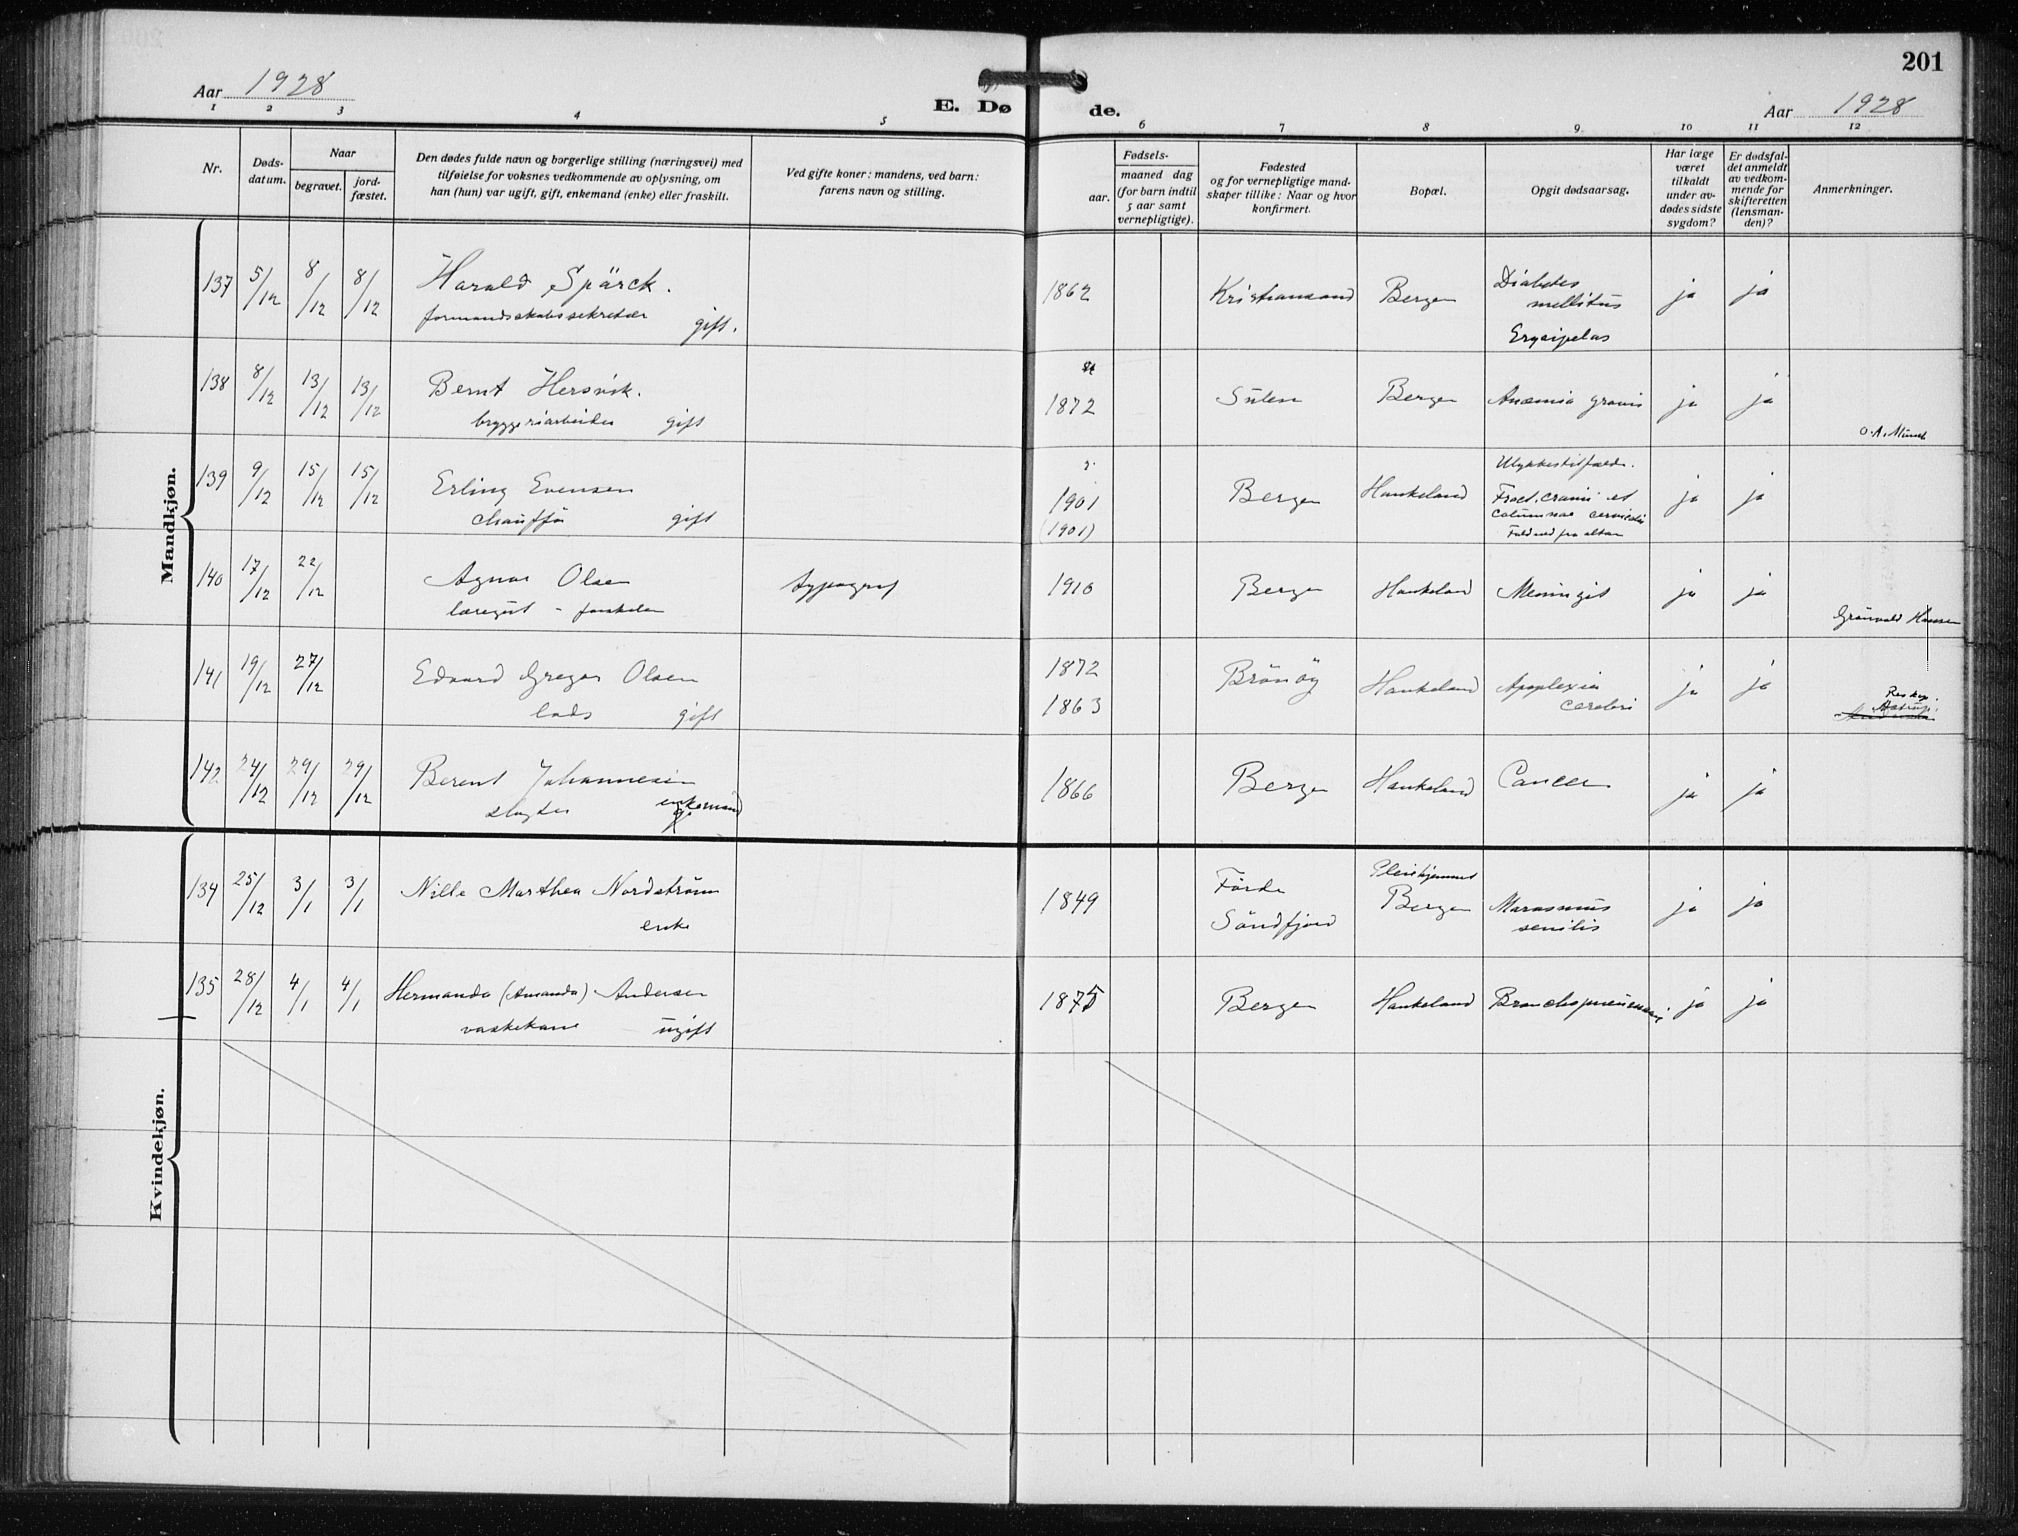 201
Aar 1928
E. Døde.
Aar 1928
1 2 3 4 5 6 7 8 9. 10 11 12
Nr.
Døds-
datum.
Naar
begravet.
jord-
fæstet.
Den dødes fulde navn og borgerlige stilling (næringsvei) med
tilføielse for voksnes vedkommende av oplysning, om
han (hun) var ugift, gift, enkemand (enke) eller fraskilt.
Ved gifte koner: mandens, ved barn:
farens navn og stilling.
Fødsels-
aar.
maaned dag
(for barn indtil
5 aar samt
vernepligtige).
Fødested
og for vernepligtige mand-
skaper tillike: Naar og hvor
konfirmert.
Bopæl.
Opgit dødsaarsag.
Har læge
været
tilkaldt
under av-
dødes sidste
sygdom?
Er dødsfal-
det anmeldt
av vedkom-
mende for
skifteretten
(lensman-
den)?
Anmerkninger.
Mandkjøn.
137 5/12 8/12 8/12 Harald Spärck. 1862 Kristiansand Bergen Diabetes ja ja
mellitus
formandsskabssekretær gift. Erysipelas
138 8/12 13/12 13/12 Bernt Hersvik. 1872 Sulen Bergen Anæmia gravis ja ja
bryggeriarbeider gift
139 9/12 15/12 15/12 Erling Evensen 1901 Bergen Haukeland Ulykkestilfælde. ja ja
Fract. cranii et
chauffør gift (1901) columnae cervicalis
140 17/12 22/12 Agnar Olsen typograf 1910 Bergen Haukeland Meningit ja ja
læregut
Grønvold Hansen
141 19/12 27/12 Edvard Gregar Olsen 1872 Brönöy Haukeland Apoplexia ja ja
lods gift 1863 cerebri
Res kap.
Astrup.
142 24/12 29/12 29/12 Berent Johannesen 1866 Bergen Haukeland Cancer ja ja
slagter enkemand
Kvindekjøn.
134 25/12 3/1 3/1 Nille Marthea Nordström 1849 Förde Pleiehjemmet Bergen Marasmus ja ja
enke Söndfjord senilis
135 28/12 4/1 4/1 Hermanda (Amanda) Andersen 1875 Bergen Haukeland Bronchopneumoni ja ja
vaskekone ugift